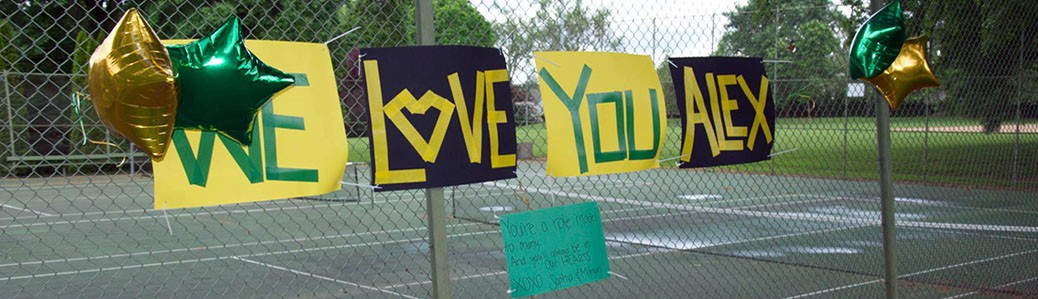 WE
LOVE
YOU
ALEX
You're a role model
to many.
And you'll always be in
our HEARTS
XOXO Sasha &